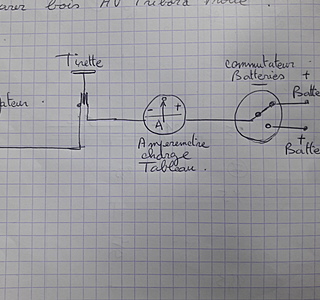 bois AV Tribord
Tirette
commutateur
Batteries
+
Batte
- +
A
Amperemetre
charge
Tableau.
+
Batte